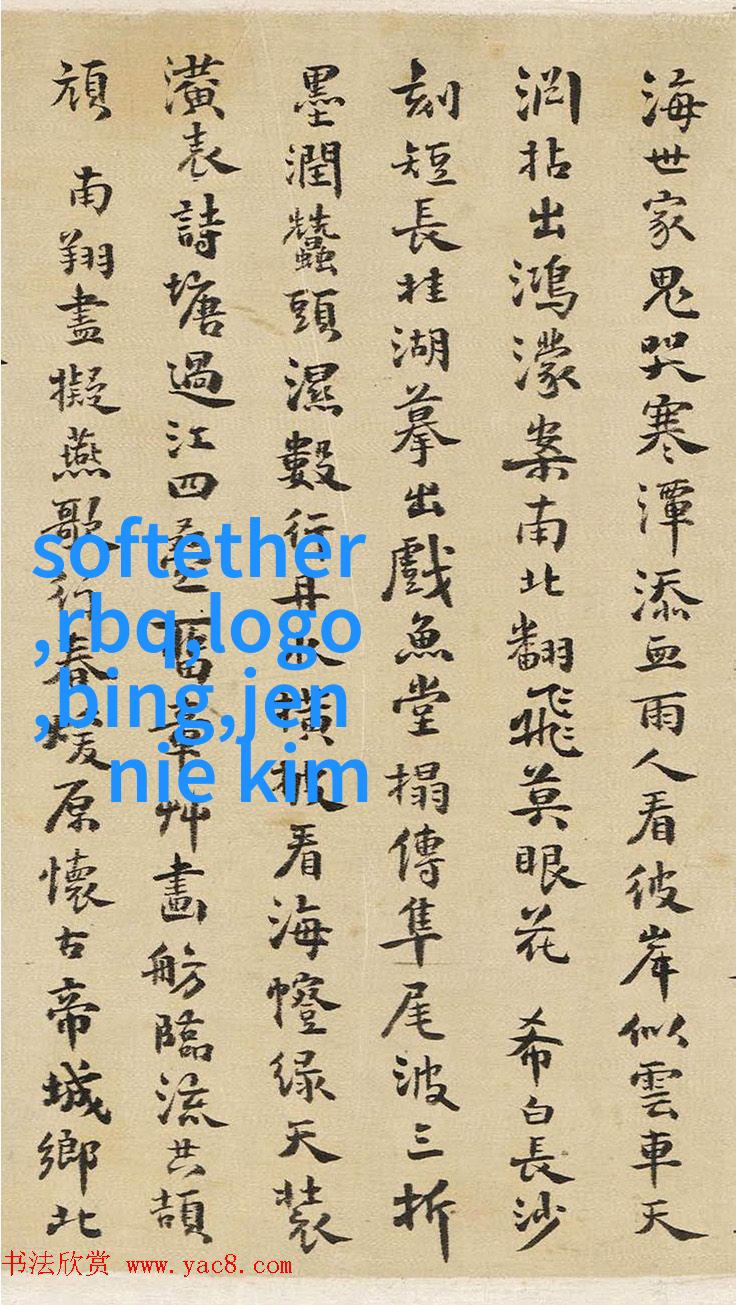 海世家鬼哭寒潭添血雨人看彼岸似雲車天
淵拈出鴻濛案南北翻飛莫眼花 希白長沙
刻短長桂湖摹出戲魚堂搨傳隼尾波三折
墨潤蠶頭濕數行丹水横披看海幢绿天裝
潢表詩塘過江四壹舊章艸畫舫臨流共頡
頏 南翔盡擬燕歌行春暖原懷古帝城鄉北
softether
,rbq,logo
,bing,jen
nie kim
书法欣赏 www.yac8.com